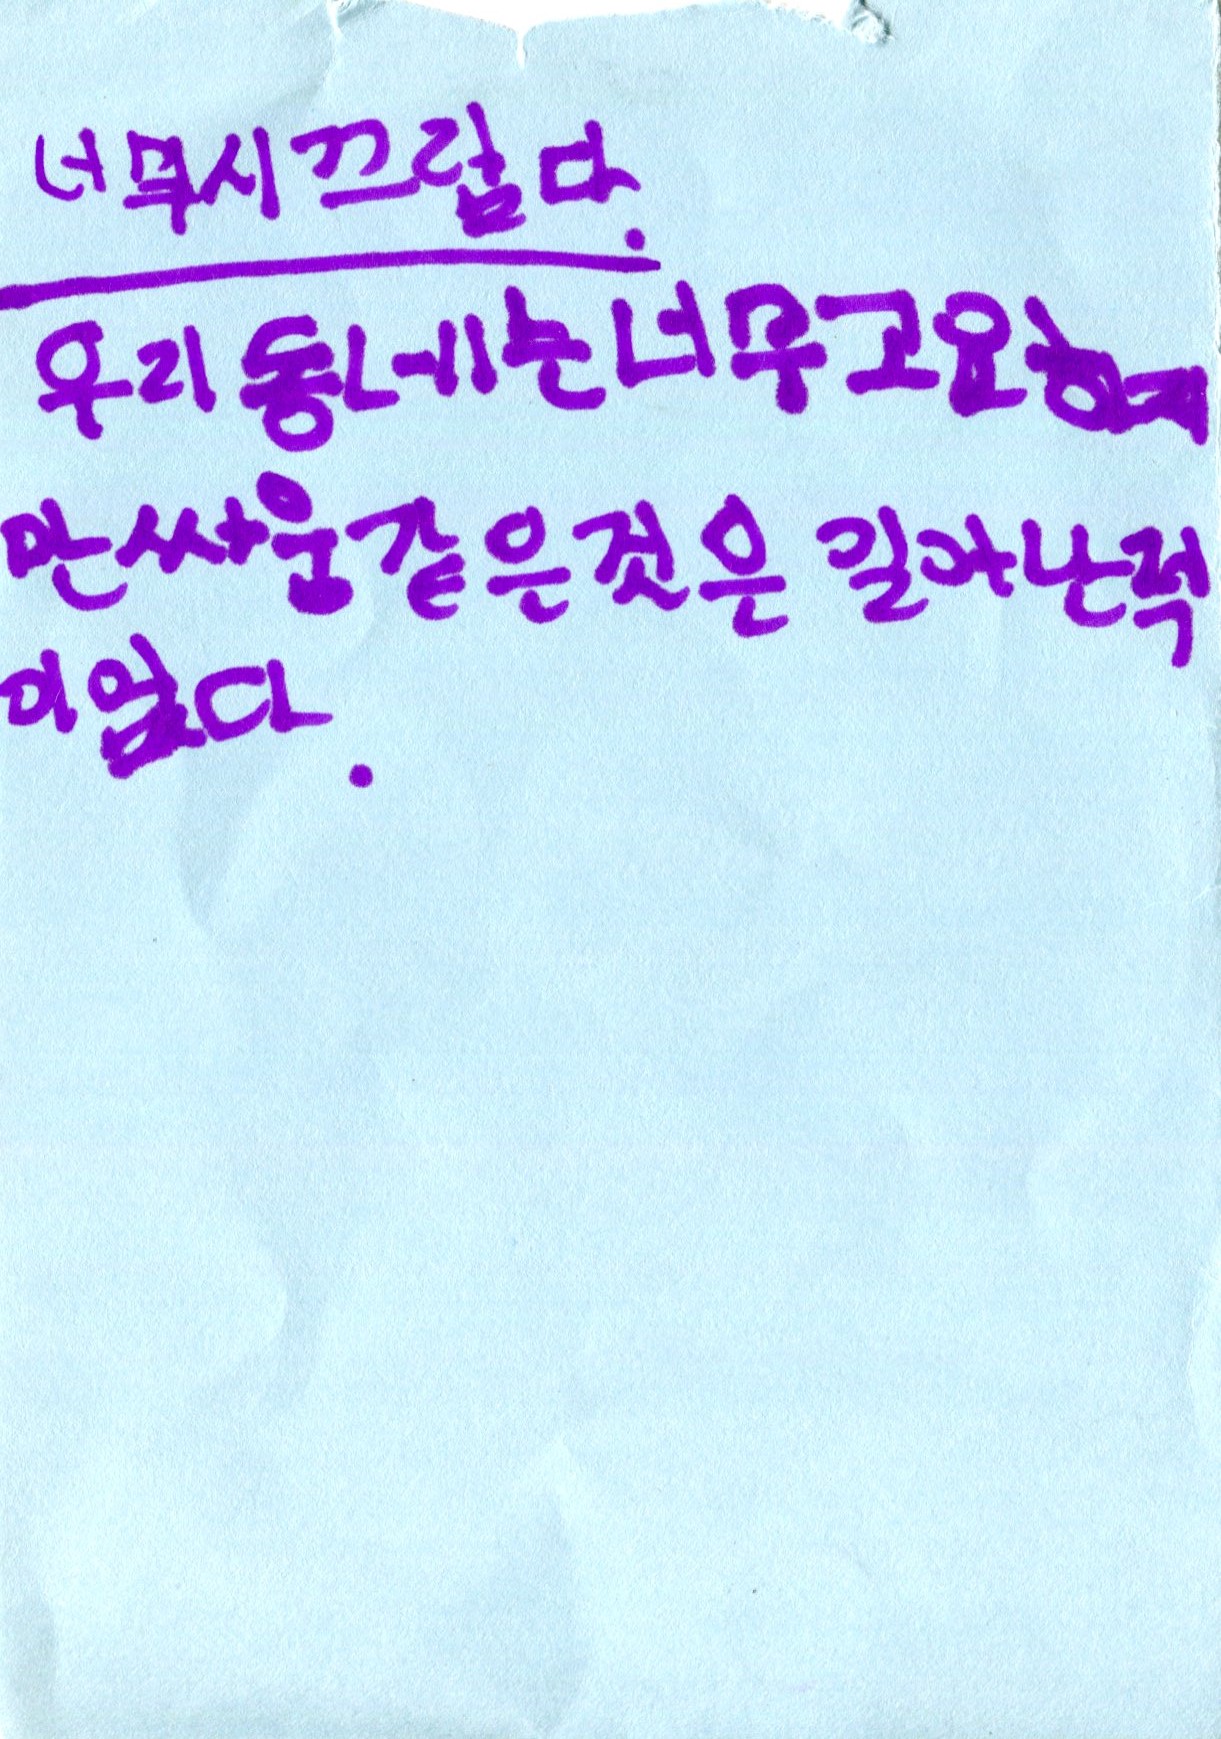 너무시끄럽다.
우리동네는너무고요하지
만싸움같은것은 길아난적
이없다.